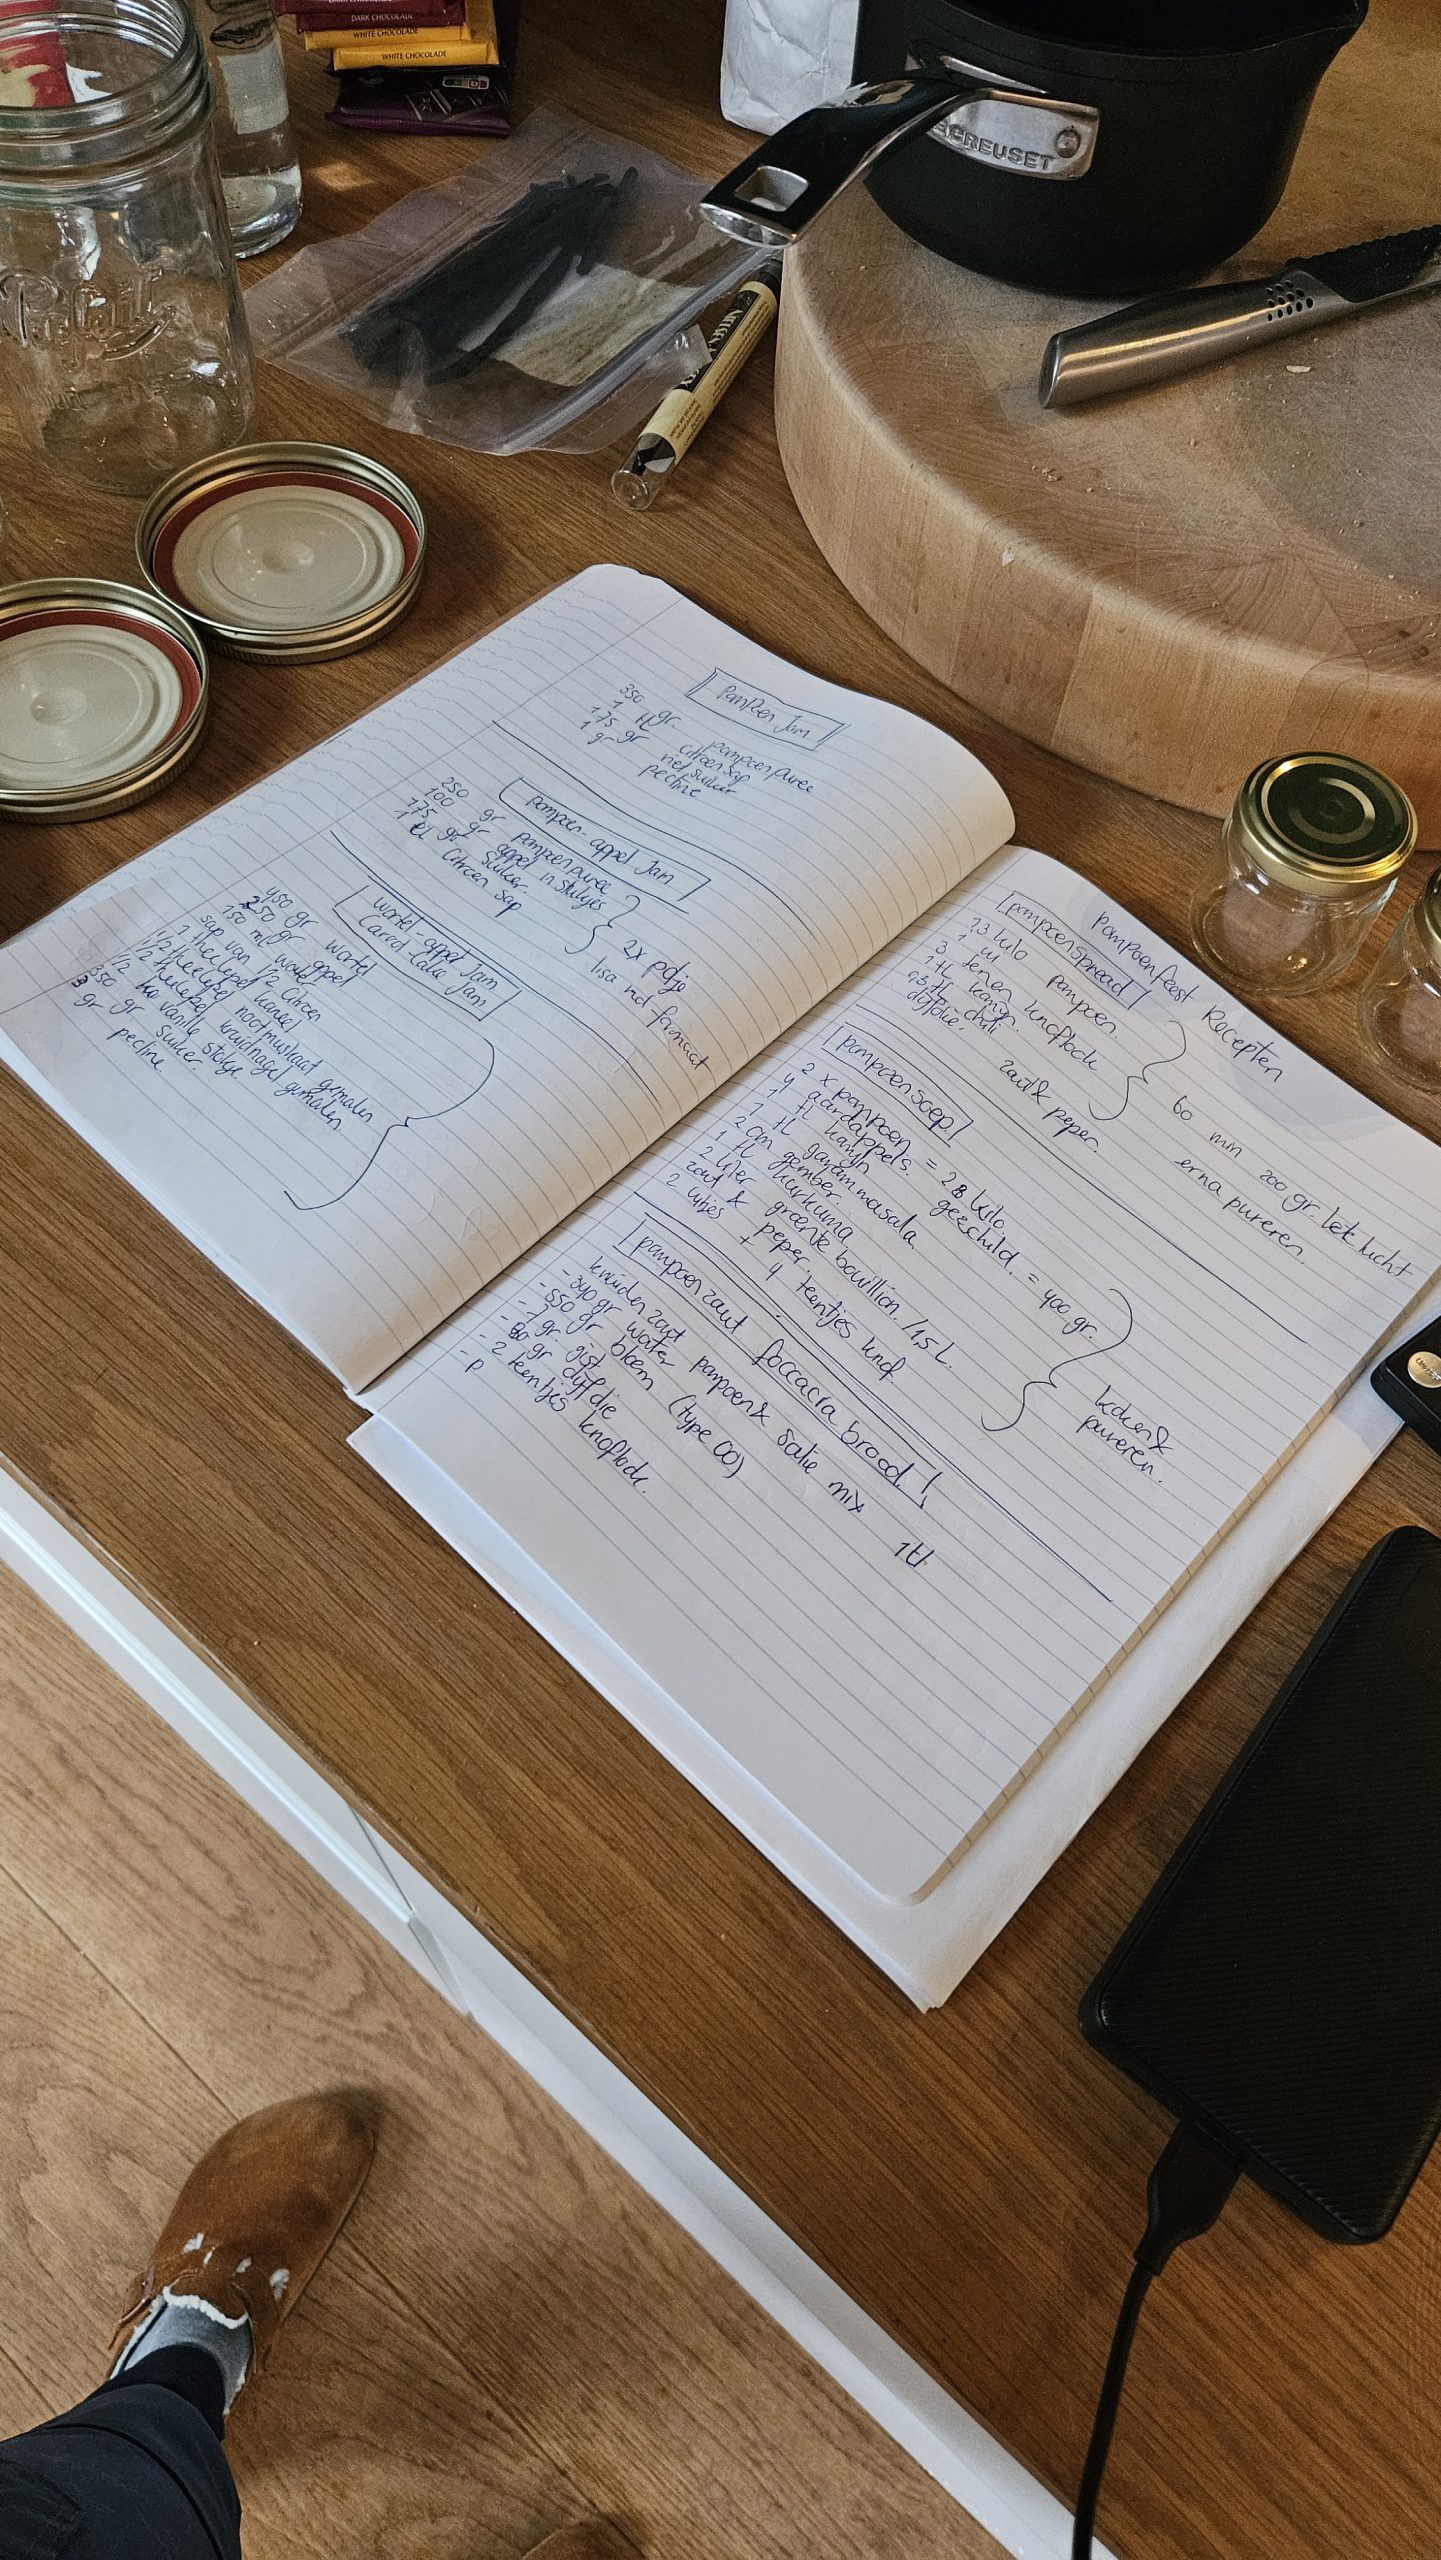 DARK CHOCOLADE
WHITE CHOCOLADE
WHITE CHOCOLADE
LECREUSET
Pampoen Jam
350 gr. pompoenpuree
1 tl citroensap
175 gr rietsuiker
1 gr pectine
pompoen-appel Jam
250 gr pompoenpuree
100 gr appel in stukjes
175 gr suiker.
1 el citroen sap
2x potje
wortel-appel Jam
Carrot-Cake Jam
450 gr wortel
250 gr appel
150 ml water
sap van 1/2 citroen
1 theelepel kaneel
1/2 theelepel nootmuskaat gemalen
1/2 theelepel kruidnagel gemalen.
1/2 vanille stokje
350 gr suiker.
3 gr pectine.
Pompoenfeest Recepten
pompoenspread
1,3 kilo pompoen
1 ui
3 tenen knoflook
1 tl karijn.
0,5 tl chili
olijfolie. zout & peper.
60 min 200 gr. hete lucht
erna pureren
pompoensoep.
2 x pompoen = 2,8 kilo.
4 aardappels. geschild. = 400 gr.
1 tl karijn
1 tl garam masala
2 cm gember.
1 tl kurkuma
2 liter groente bouillion. / 1,5 L.
zout & peper.
2 uitjes + 4 teentjes knof.
koken & pureren.
pompoenzaut foccacia brood!
kruiden zout pompoen & salie mix 1tl
- 340 gr water
- 550 gr bloem (type 00)
- 7 gr. gist
- 80 gr olijfolie
- 2 teentjes knoflook.
- p